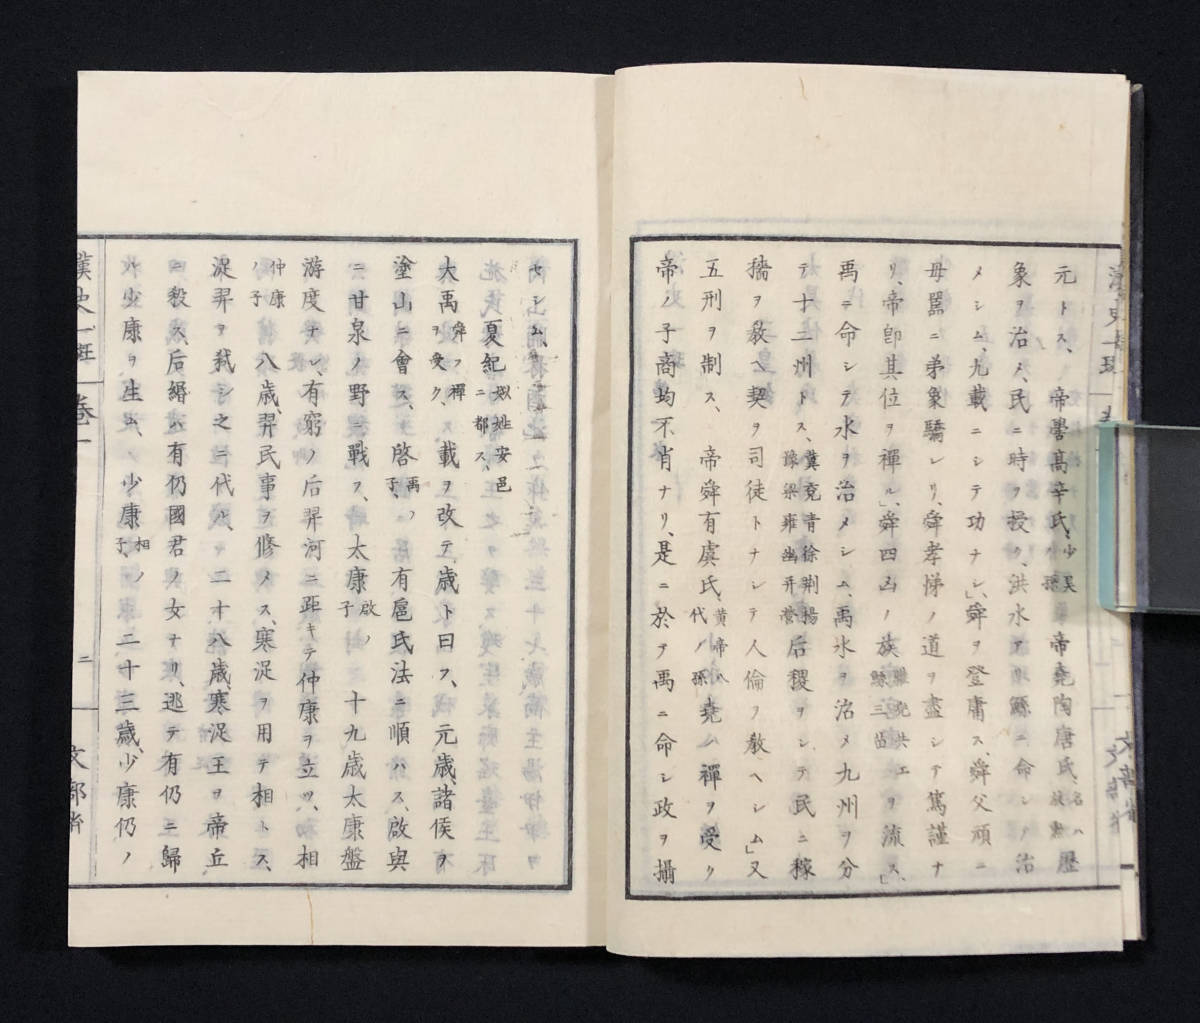 元トス、帝嚳高辛氏、少昊ノ孫帝堯陶唐氏、名ハ放勲歴
象ヲ治メ、民ニ時ヲ授ク、洪水アリ鯀ニ命シ治
メシム、九載ニシテ功ナシ、舜ヲ登庸ス、舜父頑ニ
母嚚ニ弟象驕レリ、舜孝悌ノ道ヲ盡シテ篤謹ナ
リ、帝卽其位ヲ禪ル」舜四凶ノ族驩兜共工鯀三苗ヲ流ス」
禹ニ命シテ水ヲ治メシム、禹水ヲ治メ九州ヲ分
テ十二州トス、冀兗青徐荆揚豫梁雍幽幷營后稷ヲシテ民ニ稼
穡ヲ敎ヘ契ヲ司徒トナシテ人倫ヲ敎ヘシム」又
五刑ヲ制ス、帝舜有虞氏、黄帝八代ノ孫堯ノ禪ヲ受ク
帝ノ子商均不肖ナリ、是ニ於テ禹ニ命シ政ヲ攝
セシム、
夏紀姒姓安邑ニ都ス、
大禹舜ノ禪ヲ受ク、載ヲ改テ歳ト曰フ、元歳、諸侯ヲ
塗山ニ會ス、啓禹ノ子、有扈氏法ニ順ハス、啟與
ニ甘泉ノ野ニ戰フ、太康啟ノ子十九歳太康盤
游度ナシ、有窮ノ后羿河ニ距キテ仲康ヲ立ツ、相
仲康ノ子八歳、羿民事ヲ修メス、寒浞ヲ用テ相トス、
浞羿ヲ弑シ之ニ代ル、二十八歳寒浞王ヲ帝丘
ニ殺ス、后緡ハ有仍國君ノ女ナリ、逃テ有仍ニ歸
リ少康ヲ生ム、少康相ノ子二十三歳、少康仍ノ
漢史一班
卷一
二
文部省